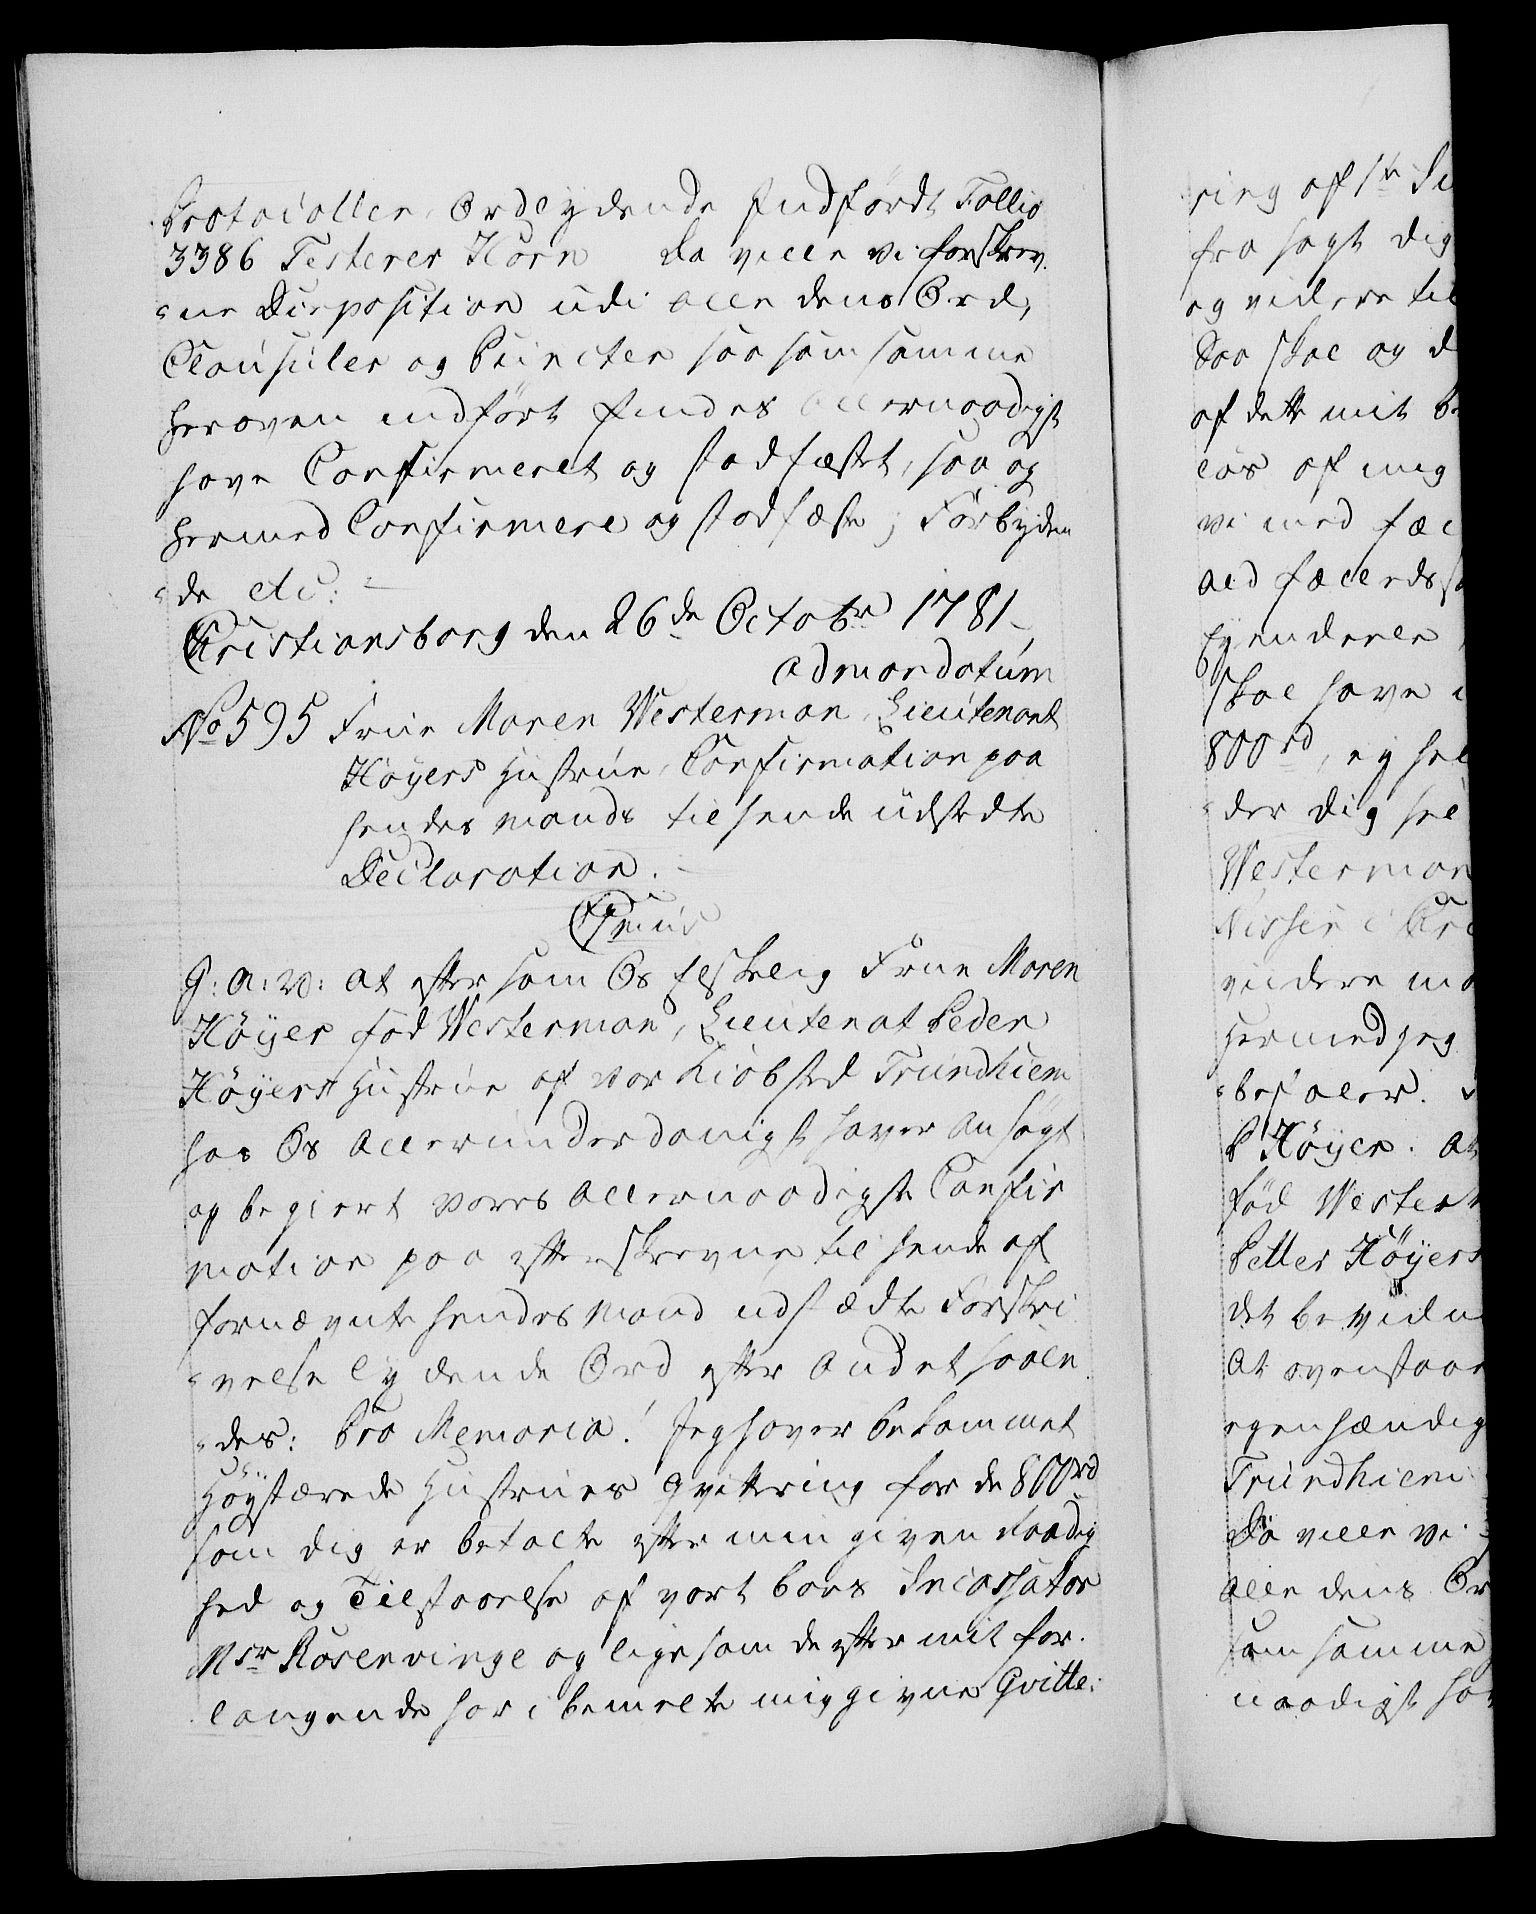 Protocollen Ordlydende Indfördt Follio
3386 Testerer Horn Da ville vi forskrev
ne Disposition udi alle dens Ord,
Clausuler og Puncter saa som samme
heroven indfört findes allernaadigst
have Confirmeret og stadfæstet, saa og
hermed Confirmere og stadfæste; Forbyden
de etc:
Christiansborg den 26de Octobr 1781
admandatum
No 595 Frue Maren Westerman, Lieutenant
Höyers Hustrue, Confirmation paa
hendes Mands til hende udstedte
Declaration.
G: A: V: at efter som Os Elskelig Frue Maren
Höyer föd Westerman, Lieutenat Peder
Höyers Hustrue af vor Kiöbsted Trundhiem
hos Os allerunderdanigst haver Ansögt
og begiert vores allernaadigste Confir
mation paa efterskrevne til hende af
fornævnte hendes Mand udstædte Forskri
velse lydende Ord efter Andet saale
des: Pro Memoria! Jeg haver bekommet
Höystærede Hustrues Qvittering for de 800rd
som dig er betalte efter min given
hed og Tilstaaelse af vort boes Incassator
Msr Rosenvinge og ligesom de efter mit for
langende har i bemelte mig givne Qvitte:
ring af 1te
fra sagt dig
og videre til
Saa skal og d
af dette mit
løs af mig
vi med fæl
ald fælleds
Eyendeele
skal have
800rd, ey hel
der dig hel
Westerman
Nissen i
videre
Hermed jeg
befaler.
P Höyer. At
föd Wester
Petter Höyers
det bevidn
At ovenstaae
egenhændig
Trundhiem
Da ville vi
alle dens Or
som samme
naadigst hav